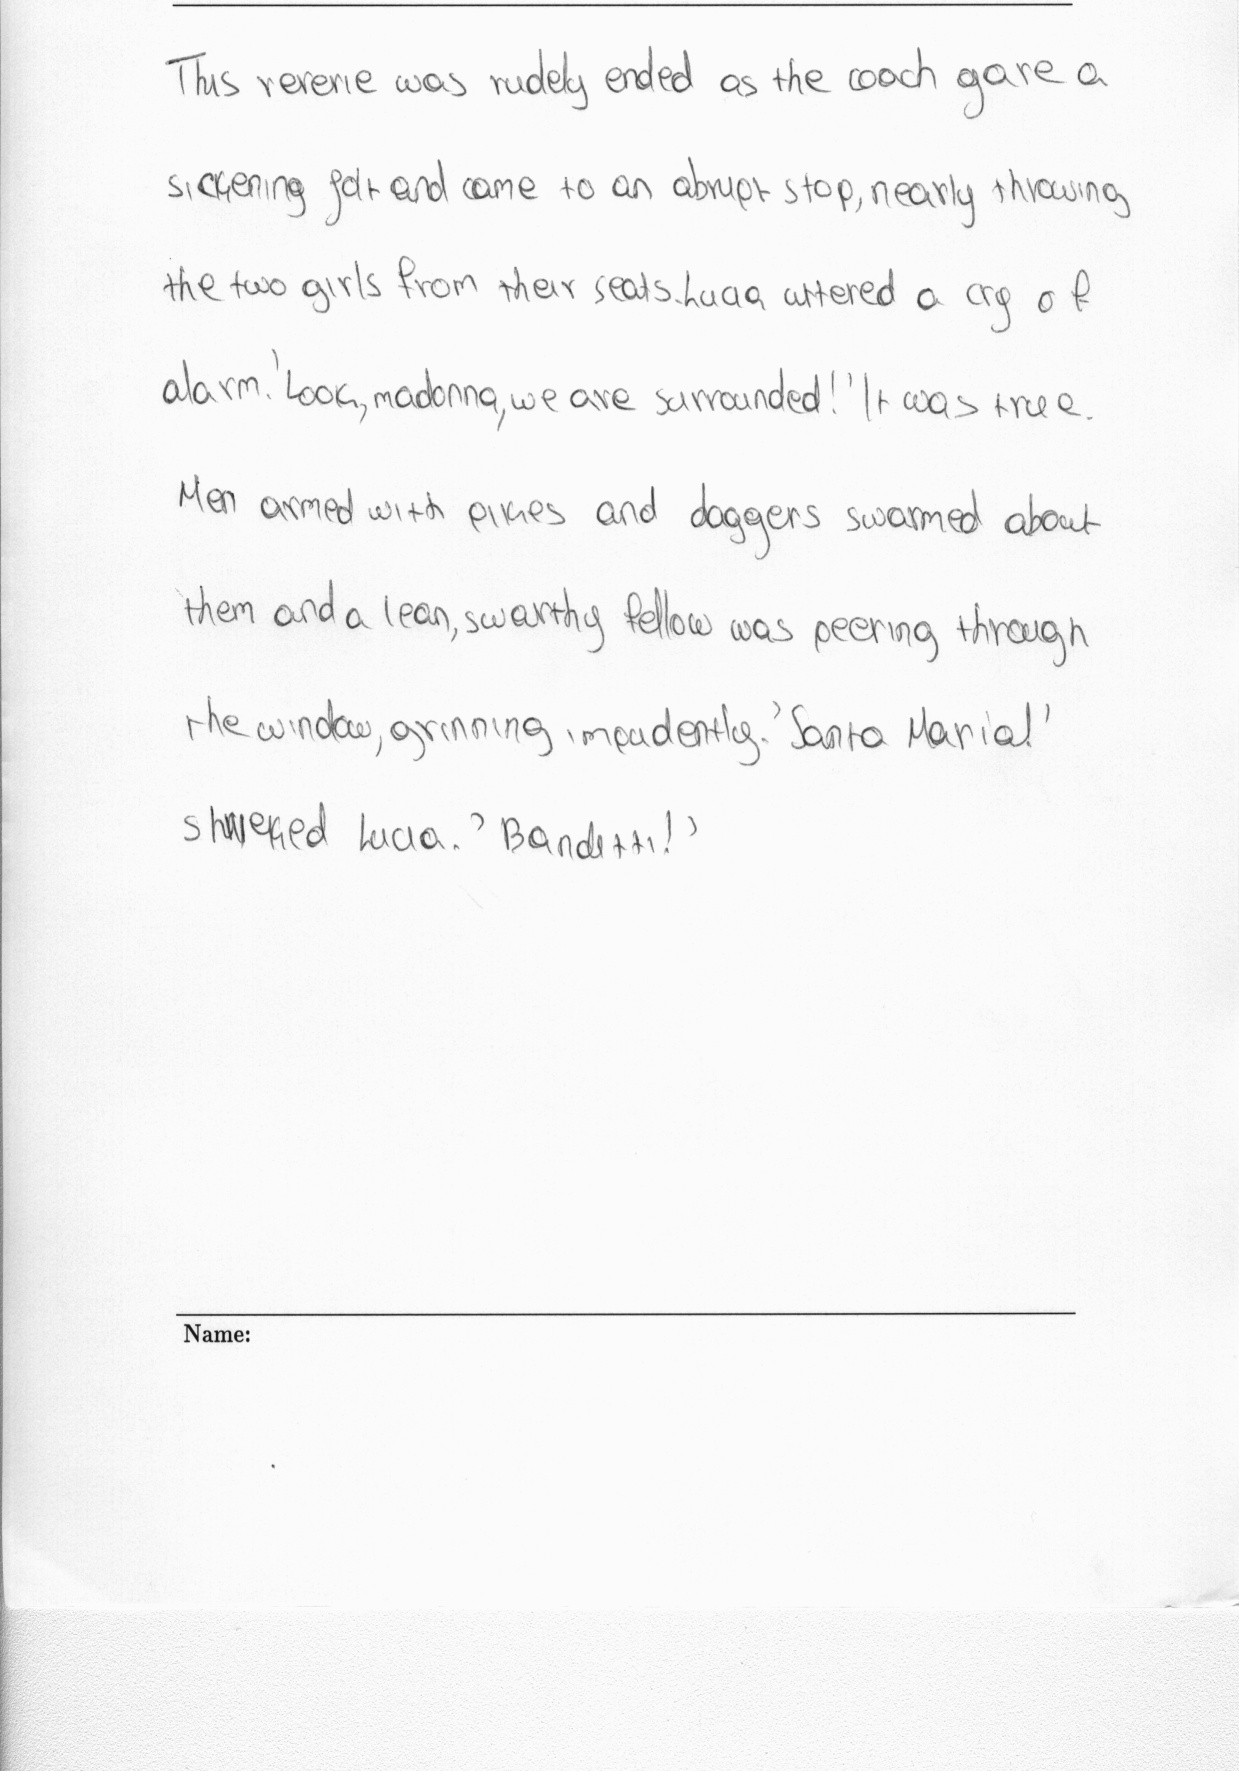 This reverie was rudely ended as the coach gave a
sickening jolt and came to an abrupt stop, nearly throwing
the two girls from their seats. Lucia uttered a cry of
alarm. 'Look, madonna, we are surrounded!' It was true.
Men armed with pikes and daggers swarmed about
them and a lean, swarthy fellow was peering through
the window, grinning impudently. 'Santa Maria!'
shrieked Lucia. 'Banditti!'
Name: